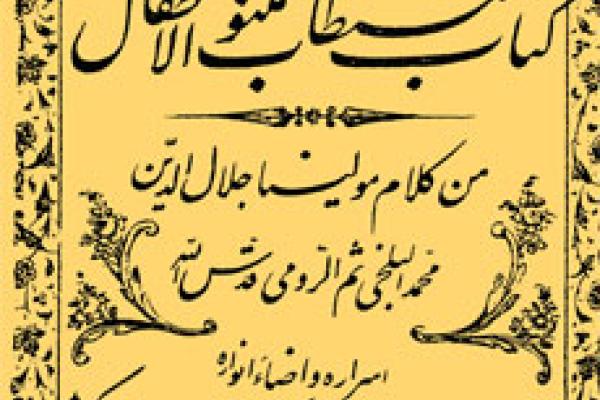 کتاب مستطاب مثنوی الاطفال
من کلام مولینا جلال الدّین
محمّد البلخی ثم الرّومی قدّس اللّه
اسراره و اضاء انواره